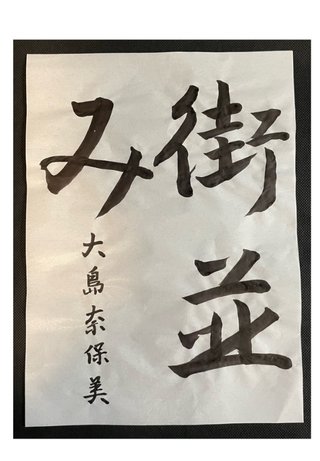 街並
み
大島奈保美